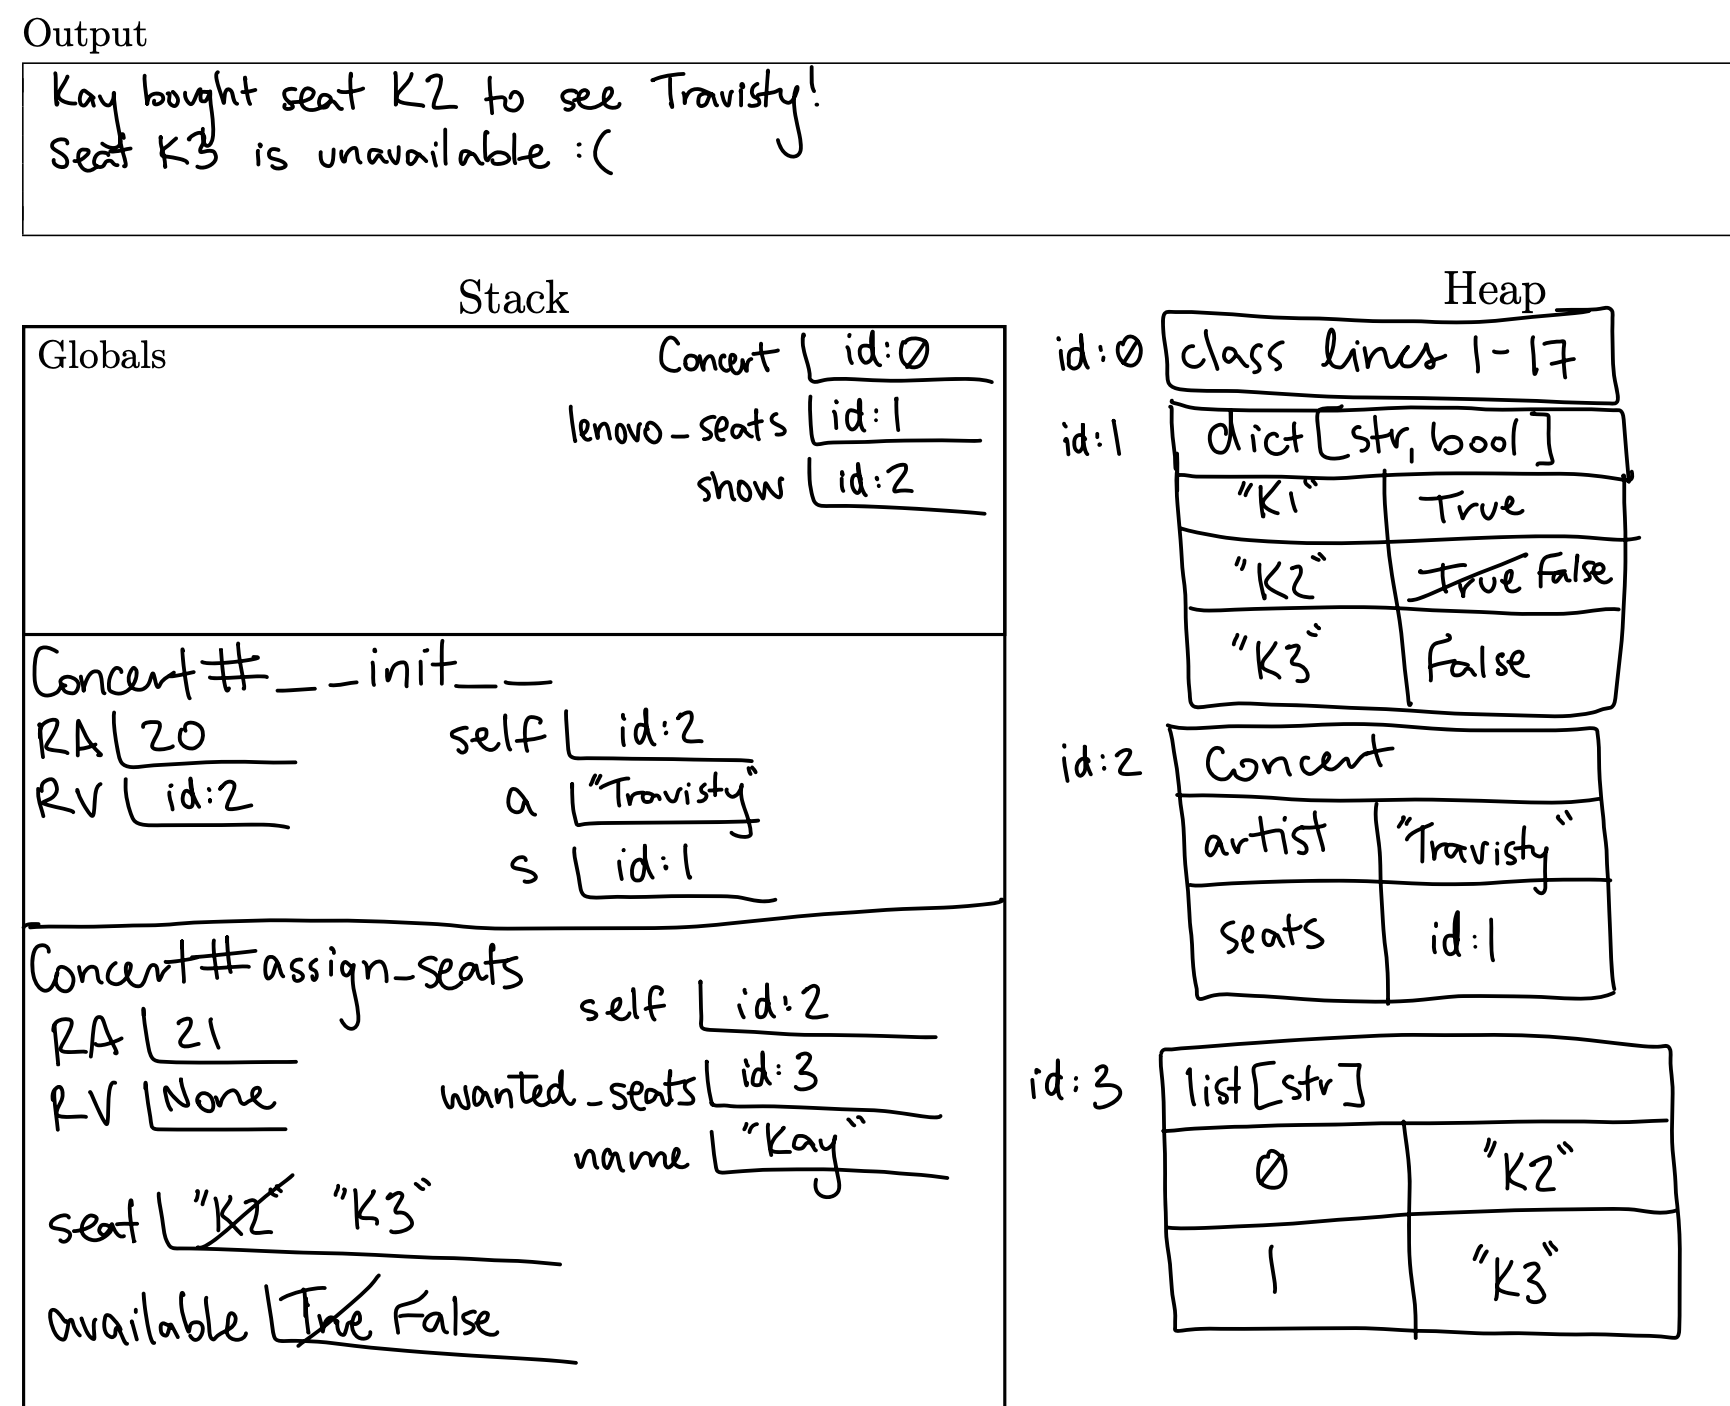 Output
Kay bought seat K2 to see Travisty!
Seat K3 is unavailable :(
Stack
Globals
Concert id:0
lenovo_seats id:1
show id:2
Concert#__init__
RA 20
RV id:2
self id:2
a "Travisty"
s id:1
Concert#assign_seats
RA 21
RV None
self id:2
wanted_seats id:3
name "Kay"
seat "K2" "K3"
available True False
Heap
id:0 class lines 1-17
id:1 dict[str, bool]
"K1" True
"K2" True False
"K3" False
id:2 Concert
artist "Travisty"
seats id:1
id:3 list[str]
0 "K2"
1 "K3"